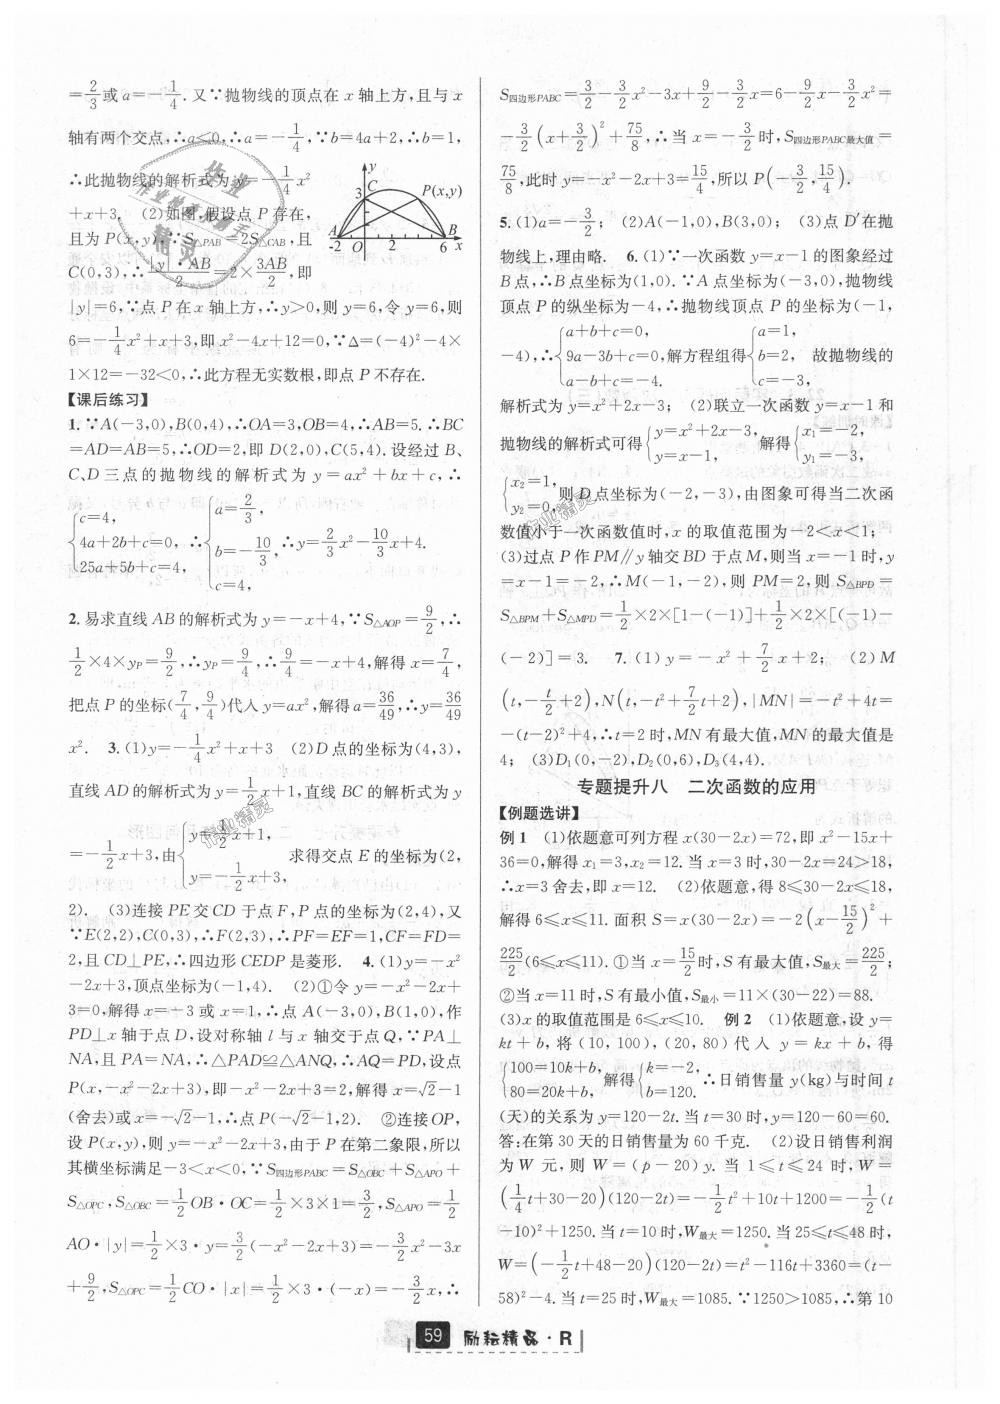 =2/3或a=-1/4.又∵抛物线的顶点在x轴上方,且与x
轴有两个交点,∴a<0,∴a=-1/4,∵b=4a+2,∴b=1,
∴此抛物线的解析式为y=-1/4x²
+x+3. (2)如图,假设点P存在,
且为P(x,y),∵S△PAB=2S△CAB,且
C(0,3),∴|y|·AB/2=2×3AB/2,即
y
C
3
P(x,y)
A
B
-2 O 2 6 x
|y|=6,∵点P在x轴上方,∴y>0,则y=6,令y=6,则
6=-1/4x²+x+3,即x²-4x+12=0,∵Δ=(-4)²-4×
1×12=-32<0,∴此方程无实数根,即点P不存在.
【课后练习】
1.∵A(-3,0),B(0,4),∴OA=3,OB=4,∴AB=5.∴BC
=AD=AB=5,∴OD=2,即D(2,0),C(5,4).设经过B、
C、D三点的抛物线的解析式为y=ax²+bx+c,∴
{c=4, 4a+2b+c=0, 25a+5b+c=4, ∴{a=2/3, b=-10/3, c=4, ∴y=2/3x²-10/3x+4.
2.易求直线AB的解析式为y=-x+4,∵S△AOP=9/2,∴
1/2×4×yP=9/2,∴yP=9/4,∴9/4=-x+4,解得x=7/4,
把点P的坐标(7/4,9/4)代入y=ax²,解得a=36/49,∴y=36/49
x². 3.(1)y=-1/4x²+x+3 (2)D点的坐标为(4,3),
直线AD的解析式为y=1/2x+1,直线BC的解析式为y
=-1/2x+3,由{y=1/2x+1, y=-1/2x+3, 求得交点E的坐标为(2,
2). (3)连接PE交CD于点F,P点的坐标为(2,4),又
∵E(2,2),C(0,3),∴F(2,3),∴PF=EF=1,CF=FD=
2,且CD⊥PE,∴四边形CEDP是菱形. 4.(1)y=-x²
-2x+3,顶点坐标为(-1,4). (2)①令y=-x²-2x+
3=0,解得x=-3或x=1,∴点A(-3,0),B(1,0),作
PD⊥x轴于点D,设对称轴l与x轴交于点Q,∵PA⊥
NA,且PA=NA,∴△PAD≌△ANQ,∴AQ=PD,设点
P(x,-x²-2x+3),即-x²-2x+3=2,解得x=√2-1
(舍去)或x=-√2-1,∴点P(-√2-1,2). ②连接OP,
设P(x,y),则y=-x²-2x+3,由于P在第二象限,所以
其横坐标满足-3<x<0,∵S四边形PABC=S△OBC+S△APO+
S△OPC,S△OBC=1/2OB·OC=1/2×3×1=3/2,S△APO=1/2
AO·|y|=1/2×3·y=3/2(-x²-2x+3)=-3/2x²-3x
+9/2,S△OPC=1/2CO·|x|=1/2×3·(-x)=-3/2x,∴
S四边形PABC=3/2-3/2x²-3x+9/2-3/2x=6-9/2x-3/2x²=
-3/2(x+3/2)²+75/8,∴当x=-3/2时,S四边形PABC最大值=
75/8,此时y=-x²-2x+3=15/4,所以P(-3/2,15/4).
5.(1)a=-3/2; (2)A(-1,0),B(3,0); (3)点D′在抛
物线上,理由略. 6.(1)∵一次函数y=x-1的图象经过
B点,∴B点坐标为(1,0).∵A点坐标为(-3,0),抛物线
顶点P的纵坐标为-4,∴抛物线顶点P的坐标为(-1,
-4),∴{a+b+c=0, 9a-3b+c=0, a-b+c=-4. 解方程组得{a=1, b=2, c=-3, 故抛物线的
解析式为y=x²+2x-3; (2)联立一次函数y=x-1和
抛物线的解析式可得{y=x²+2x-3, y=x-1, 解得{x₁=-2, y₁=-3,
{x₂=1, y₂=0, 则D点坐标为(-2,-3),由图象可得当二次函
数值小于一次函数值时,x的取值范围为-2<x<1;
(3)过点P作PM∥y轴交BD于点M,则当x=-1时,y
=x-1=-2,∴M(-1,-2),则PM=2,则S△BPD=
S△BPM+S△MPD=1/2×2×[1-(-1)]+1/2×2×[(-1)-
(-2)]=3. 7.(1)y=-x²+7/2x+2; (2)M
(t,-t/2+2),N(t,-t²+7/2t+2),|MN|=-t²+4t=
-(t-2)²+4,∴t=2时,MN有最大值,MN的最大值是
4; (3)D₁(0,-2),D₂(0,6),D₃(4,4).
专题提升八 二次函数的应用
【例题选讲】
例1 (1)依题意可列方程x(30-2x)=72,即x²-15x+
36=0,解得x₁=3,x₂=12.当x=3时,30-2x=24>18,
∴x=3舍去,即x=12. (2)依题意,得8≤30-2x≤18,
解得6≤x≤11.面积S=x(30-2x)=-2(x-15/2)²+
225/2(6≤x≤11).①当x=15/2时,S有最大值,S最大=225/2;
②当x=11时,S有最小值,S最小=11×(30-22)=88.
(3)x的取值范围是6≤x≤10. 例2 (1)依题意,设y=
kt+b,将(10,100),(20,80)代入y=kx+b,得
{100=10k+b, 80=20k+b, 解得{k=-2, b=120. ∴日销售量y(kg)与时间t
(天)的关系为y=120-2t.当t=30时,y=120-60=60.
答:在第30天的日销售量为60千克. (2)设日销售利润
为W元,则W=(p-20)y.当1≤t≤24时,W=
(1/4t+30-20)(120-2t)=-1/2t²+10t+1200=-1/2(t
-10)²+1250.当t=10时,W最大=1250.当25≤t≤48时,
W=(-1/2t+48-20)(120-2t)=t²-116t+3360=(t-
58)²-4.当t=25时,W最大=1085.∵1250>1085,∴第10
59 励耘精品·R